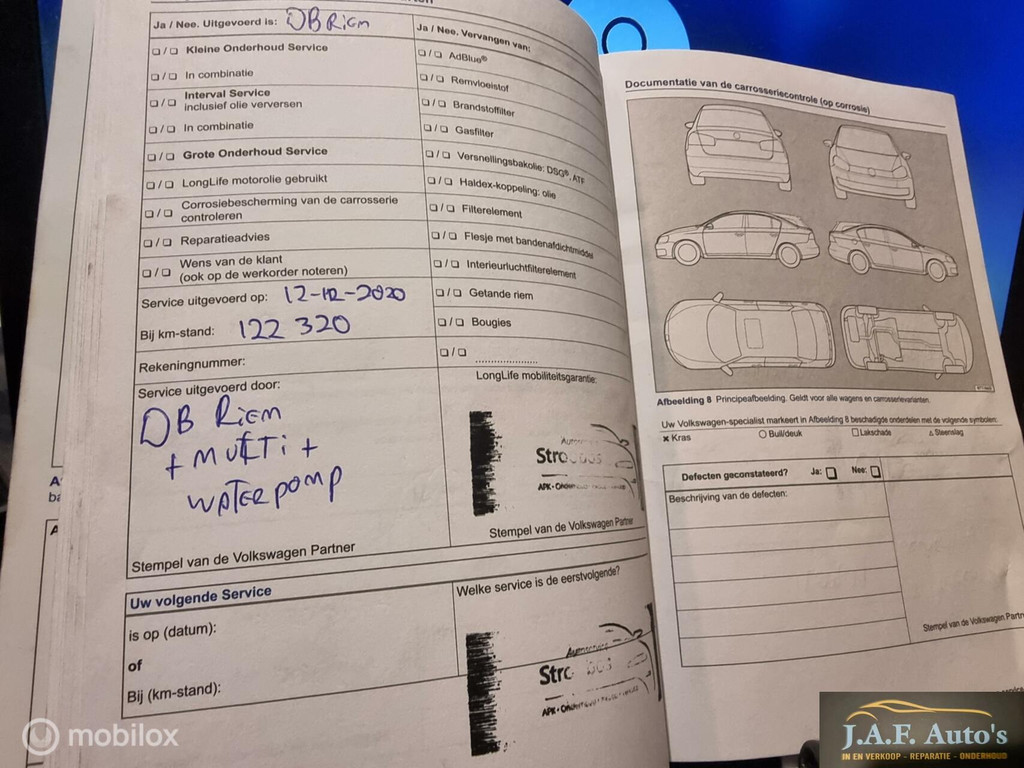 Ja / Nee. Uitgevoerd is: DB Riem
☐ / ☐ Kleine Onderhoud Service
☐ / ☐ In combinatie
☐ / ☐ Interval Service
inclusief olie verversen
☐ / ☐ In combinatie
☐ / ☐ Grote Onderhoud Service
☐ / ☐ LongLife motorolie gebruikt
☐ / ☐ Corrosiebescherming van de carrosserie
controleren
☐ / ☐ Reparatieadvies
☐ / ☐ Wens van de klant
(ook op de werkorder noteren)
Service uitgevoerd op: 12-12-2020
Bij km-stand: 122 320
Rekeningnummer:
Service uitgevoerd door:
DB Riem
+ MULTI +
WATERPOMP
Stempel van de Volkswagen Partner
Ja / Nee. Vervangen van:
☐ / ☐ AdBlue®
☐ / ☐ Remvloeistof
☐ / ☐ Brandstoffilter
☐ / ☐ Gasfilter
☐ / ☐ Versnellingsbakolie: DSG®, ATF
☐ / ☐ Haldex-koppeling: olie
☐ / ☐ Filterelement
☐ / ☐ Flesje met bandenafdichtmiddel
☐ / ☐ Interieurluchtfilterelement
☐ / ☐ Getande riem
☐ / ☐ Bougies
☐ / ☐ ....................
LongLife mobiliteitsgarantie:
Stempel van de Volkswagen Partner
Uw volgende Service
is op (datum):
of
Bij (km-stand):
Welke service is de eerstvolgende?
Documentatie van de carrosseriecontrole (op corrosie)
Afbeelding 8 Principeafbeelding. Geldt voor alle wagens en carrosserievarianten.
Uw Volkswagen-specialist markeert in Afbeelding 8 beschadigde onderdelen met de volgende symbolen:
× Kras ○ Buil/deuk ☐ Lakschade △ Steenslag
Defecten geconstateerd? Ja: ☐ Nee: ☐
Beschrijving van de defecten:
Stempel van de Volkswagen Partner
mobilox
J.A.F. Auto's
IN EN VERKOOP - REPARATIE - ONDERHOUD